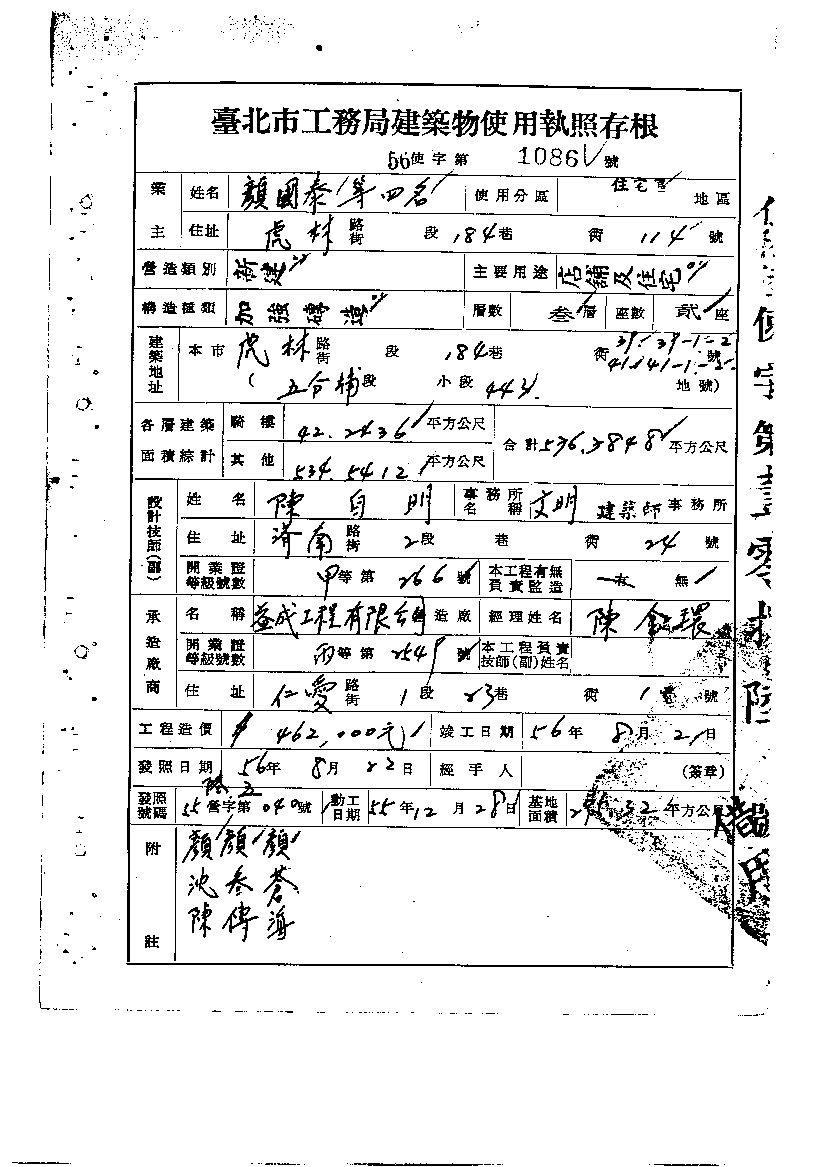 臺北市工務局建築物使用執照存根
56使字第 10861 號
業主 姓名 顏國泰等四名 使用分區 住宅 地區
住址 虎林 路街 段 184巷 衖 114 號
營造類別 新建 主要用途 店舖及住宅
構造種類 加強磚造 層數 叁層 座數 貳座
建築地址 本市 虎林 路街 段 184巷 衖 39.39-1-2 41.41-1-2 號
(五分埔段 小段 443 地號)
各層建築面積綜計 騎樓 42.2436 平方公尺 合計 536.3848 平方公尺
其他 534.5412 平方公尺
設計技師(副) 姓名 陳自明 事務所名稱 文明 建築師事務所
住址 濟南 路街 2段 巷 衖 24 號
開業證等級號數 甲等第 266 號 本工程有無負責監造 有 無
承造廠商 名稱 益成工程有限公司 造廠 經理姓名 陳 環
開業證等級號數 丙等第 2549 號 本工程負責技師(副)姓名
住址 仁愛 路街 1段 23巷 衖 1 號
工程造價 $462,000元 竣工日期 56年 8月 21日
發照日期 56年 8月 22日 經手人 (簽章)
發照號碼 55營字第 040號 動工日期 55年12月28日 基地面積 32 平方公尺
附註
顏顏顏
池叁蒼
陳傳海
使字第壹零捌陸